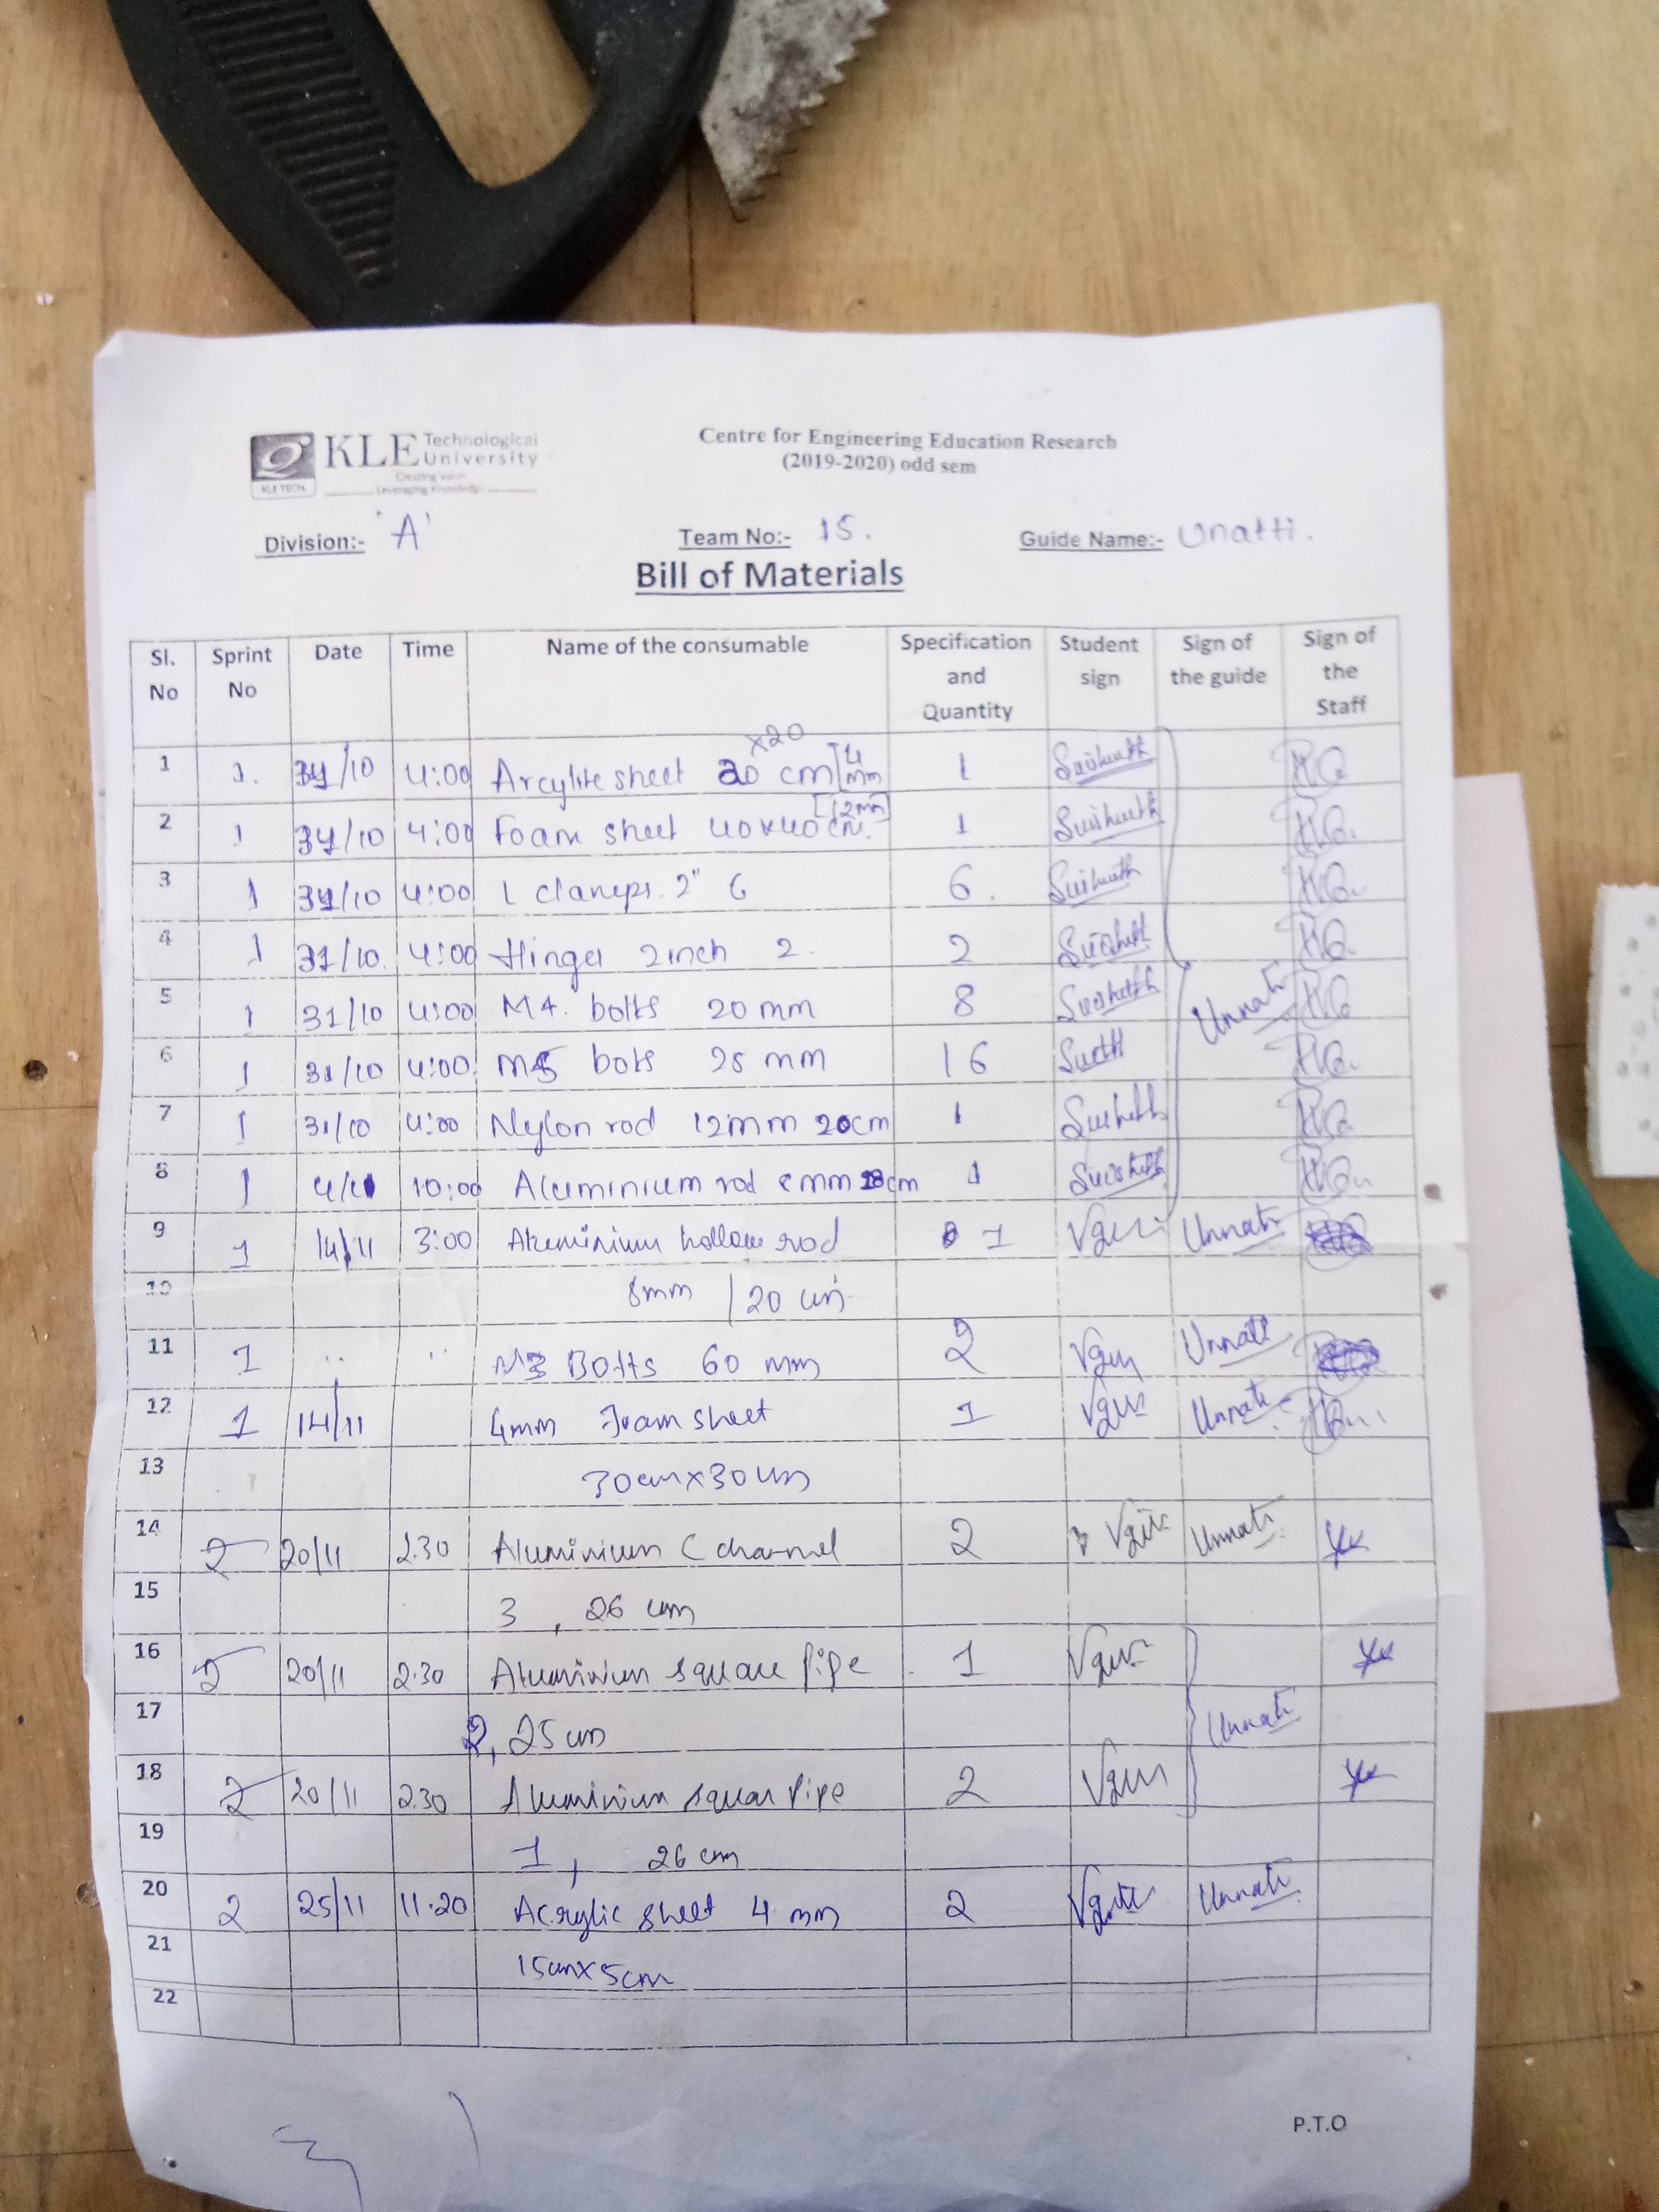 KLE Technological University
Creating Value
Leveraging Knowledge
KLE TECH
Centre for Engineering Education Research
(2019-2020) odd sem
Division:- 'A'
Team No:- 15.
Guide Name:- Unatti.
Bill of Materials
Sl. No Sprint No Date Time Name of the consumable Specification and Quantity Student sign Sign of the guide Sign of the Staff
1 1. 31/10 4:00 Arcylite sheet 20 x20 cm [4 mm 1
2 1 31/10 4:00 Foam sheet 40x40 cm. [12mm] 1
3 1 31/10 4:00 L clamps. 2" 6 6.
4 1 31/10 4:00 Hinges 2inch 2. 2
5 1 31/10 4:00 M4. bolts 20 mm 8 Unnati
6 1 31/10 4:00 M5 bots 25 mm 16
7 1 31/10 4:00 Nylon rod 12mm 20cm 1
8 1 4/11 10:00 Aluminium rod 8mm 18cm 1
9 1 14/11 3:00 Aluminium hollow rod 1 Unnati
10 8mm /20 cm
11 1 .. .. M3 Botts 60 mm 2 Unnati
12 1 14/11 4mm Foam sheet 1 Unnati
13 30cmx30cm
14 2 20/11 2.30 Aluminium C channel 2 Unnati
15 3, 26 cm
16 2 20/11 2.30 Aluminium square Pipe 1
17 2, 25cm Unnati
18 2 20/11 2.30 Aluminium squar Pipe 2
19 1, 26 cm
20 2 25/11 11.20 Acrylic sheet 4 mm 2 Unnati
21 15cmx5cm
22
P.T.O